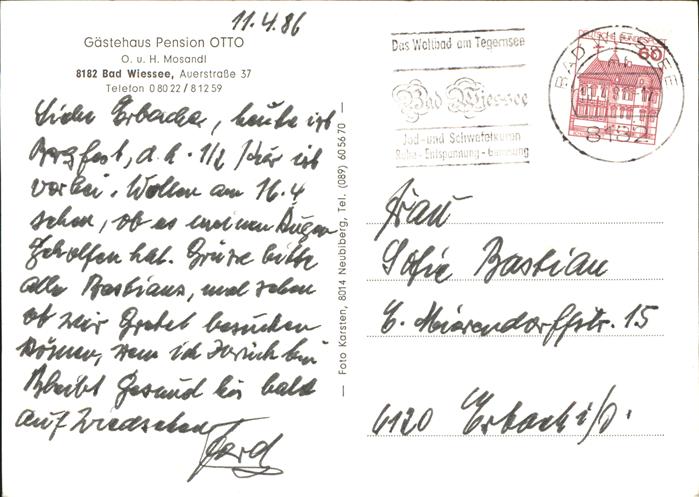 11.4.86
Gästehaus Pension OTTO
O. u. H. Mosandl
8182 Bad Wiessee, Auerstraße 37
Telefon 08022/81259
Liebe Erbacher, heute ist
Bergfest, d.h. 1/2 Kur ist
vorbei. Wollen am 16.4
sehen, ob es meinen Augen
geholfen hat. Grüße bitte
alle Bastians, und sehen
ob wir Gretel besuchen
können, wenn ich zurück bin
Bleibt gesund bis bald
Auf Wiedersehen
Gerd
Foto Karsten, 8014 Neubiberg, Tel. (089) 605670
Das Weltbad am Tegernsee
Bad Wiessee
Jod- und Schwefelkuren
Ruhe - Entspannung - Genesung
BAD WIESSEE
8182
60
Frau
Sofie Bastian
C. Mierendorffstr. 15
6120 Erbach i/O.